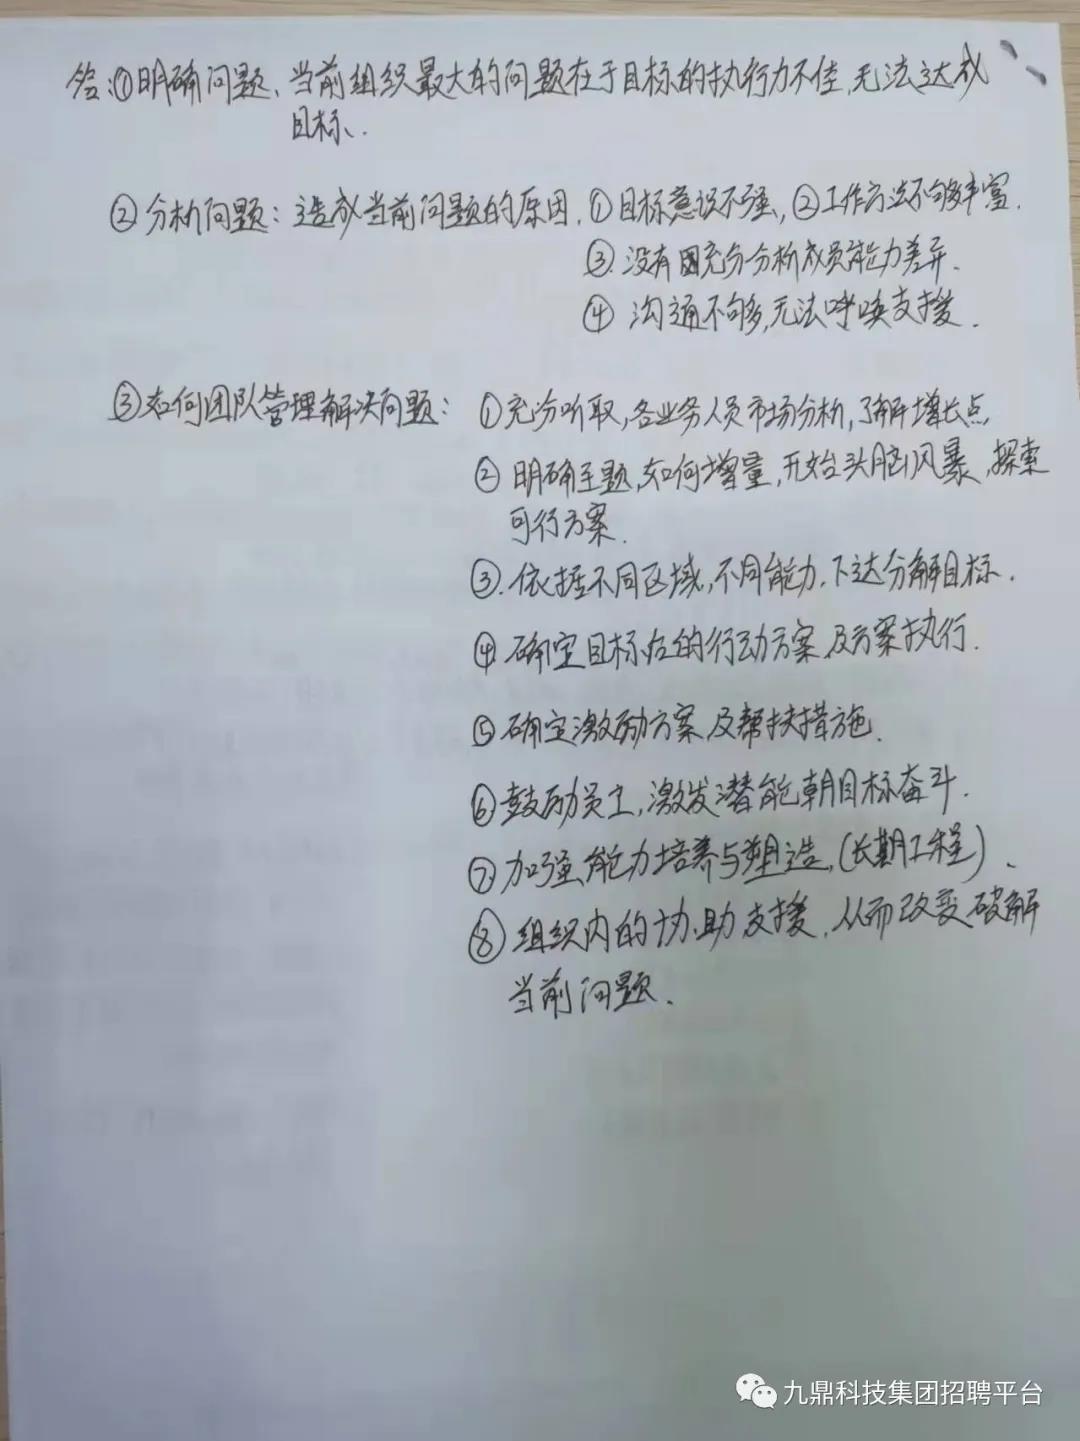 答:①明确问题、当前组织最大的问题在于目标的执行力不佳,无法达成
目标.
②分析问题:造成当前问题的原因.①目标意识不强,②工作方法不够丰富.
③.没有充分分析成员能力差异.
④ 沟通不够,无法呼唤支援.
③如何团队管理解决问题: ①充分听取,各业务人员市场分析,了解增长点,
② 明确主题,如何增量,开始头脑风暴,探索
可行方案.
③.依据不同区域,不同能力.下达分解目标.
④.确定目标后的行动方案,及方案执行.
⑤确定激励方案,及帮扶措施.
⑥鼓励员工,激发潜能朝目标奋斗.
⑦.加强能力培养与塑造,(长期工程)、
⑧ 组织内的协助支援,从而改变破解
当前问题.
九鼎科技集团招聘平台